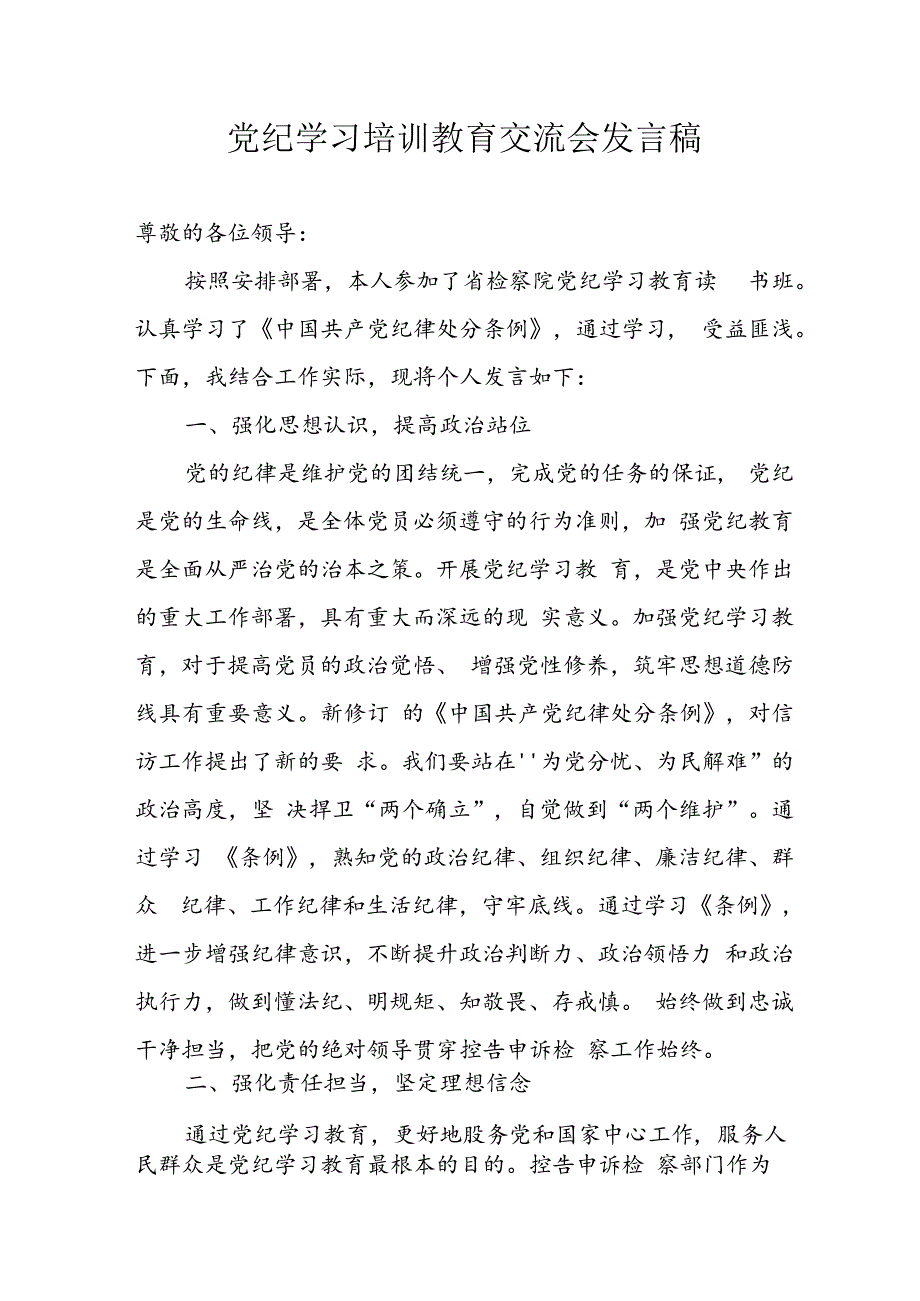 党纪学习培训教育交流会发言稿
尊敬的各位领导：
按照安排部署，本人参加了省检察院党纪学习教育读 书班。
认真学习了《中国共产党纪律处分条例》，通过学习， 受益匪浅。
下面，我结合工作实际，现将个人发言如下：
一、强化思想认识，提高政治站位
党的纪律是维护党的团结统一，完成党的任务的保证， 党纪
是党的生命线，是全体党员必须遵守的行为准则，加 强党纪教育
是全面从严治党的治本之策。开展党纪学习教 育，是党中央作出
的重大工作部署，具有重大而深远的现 实意义。加强党纪学习教
育，对于提高党员的政治觉悟、 增强党性修养，筑牢思想道德防
线具有重要意义。新修订 的《中国共产党纪律处分条例》，对信
访工作提出了新的要 求。我们要站在''为党分忧、为民解难”的
政治高度，坚 决捍卫“两个确立”，自觉做到“两个维护”。通
过学习 《条例》，熟知党的政治纪律、组织纪律、廉洁纪律、群
众 纪律、工作纪律和生活纪律，守牢底线。通过学习《条例》，
进一步增强纪律意识，不断提升政治判断力、政治领悟力 和政治
执行力，做到懂法纪、明规矩、知敬畏、存戒慎。 始终做到忠诚
干净担当，把党的绝对领导贯穿控告申诉检 察工作始终。
二、强化责任担当，坚定理想信念
通过党纪学习教育，更好地股务党和国家中心工作，服务人
民群众是党纪学习教育最根本的目的。控告申诉检 察部门作为